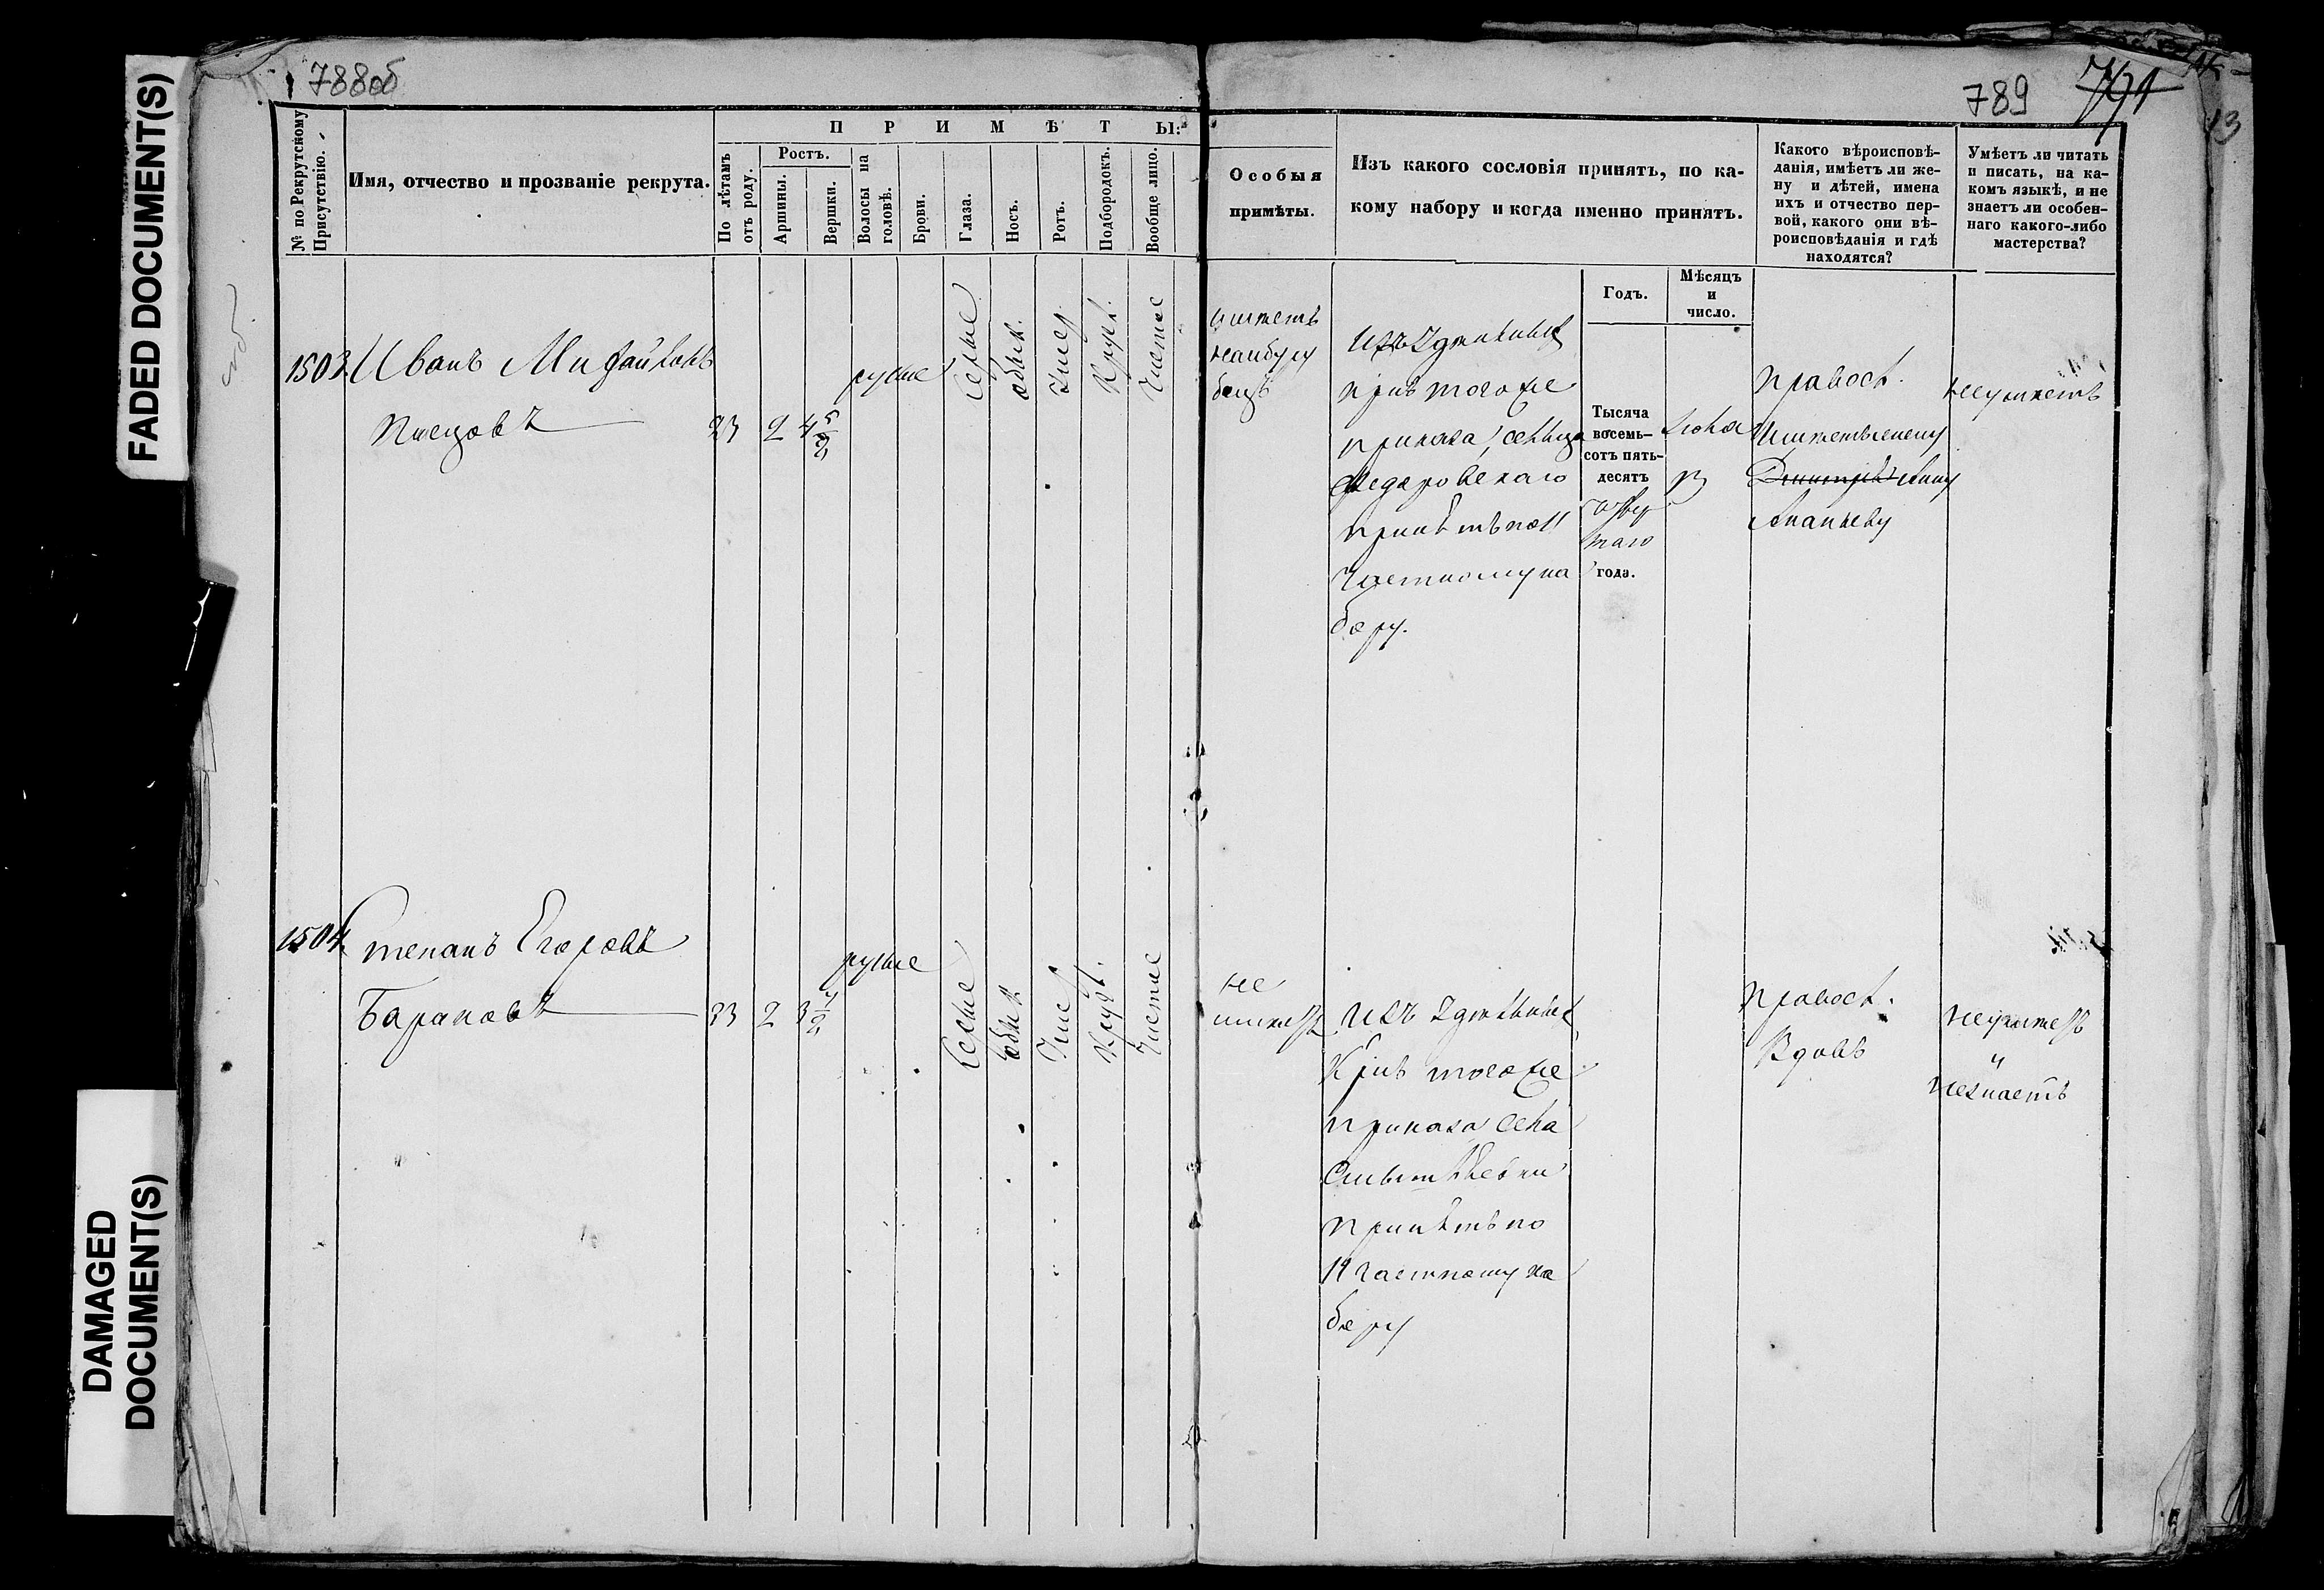 FADED DOCUMENT(S)
DAMAGED
DOCUMENT(S)
788об
789 791
13
№ по Рекрутскому
Присутствію.
Имя, отчество и прозваніе рекрута.
ПРИМѢТЫ:
По лѣтамъ
отъ роду.
Ростъ.
Аршины.
Вершки.
Волосы на
головѣ.
Брови.
Глаза.
Носъ.
Ротъ.
Подбородокъ.
Вообще лицо.
Особыя
примѣты.
Изъ какого сословія принятъ, по ка-
кому набору и когда именно принятъ.
Годъ.
Мѣсяцъ
и
число.
Какого вѣроисповѣ-
данія, имѣетъ ли же-
ну и дѣтей, имена
ихъ и отчество пер-
вой, какого они вѣ-
роисповѣданія и гдѣ
находятся?
Умѣетъ ли читать
и писать, на ка-
комъ языкѣ, и не
знаетъ ли особен-
наго какого-либо
мастерства?
1503
Иванъ Михайловъ
Писцовъ 23 2 4 5/8
русые
Серые
обык.
Умер
Кругл.
Чистое
имѣетъ
Изъ Удѣльныхъ
Крнъ того же
приказа
Федоровскаго
принятъ по 11
частному на
бору.
Тысяча
восемь-
сотъ пять-
десятъ
года.
Правосл.
Имѣетъ жену
Ананьеву
неумѣетъ
1504
Степанъ Егоровъ
Барановъ 33 2 3 7/8
русые
Серые
обык.
Уме
Кругл.
Чистое
не
имѣетъ
Изъ Удѣльныхъ
Крнъ того же
приказа села
принятъ по
11 частному на
бору
Правосл.
Вдовъ
неумѣетъ
и
незнаетъ